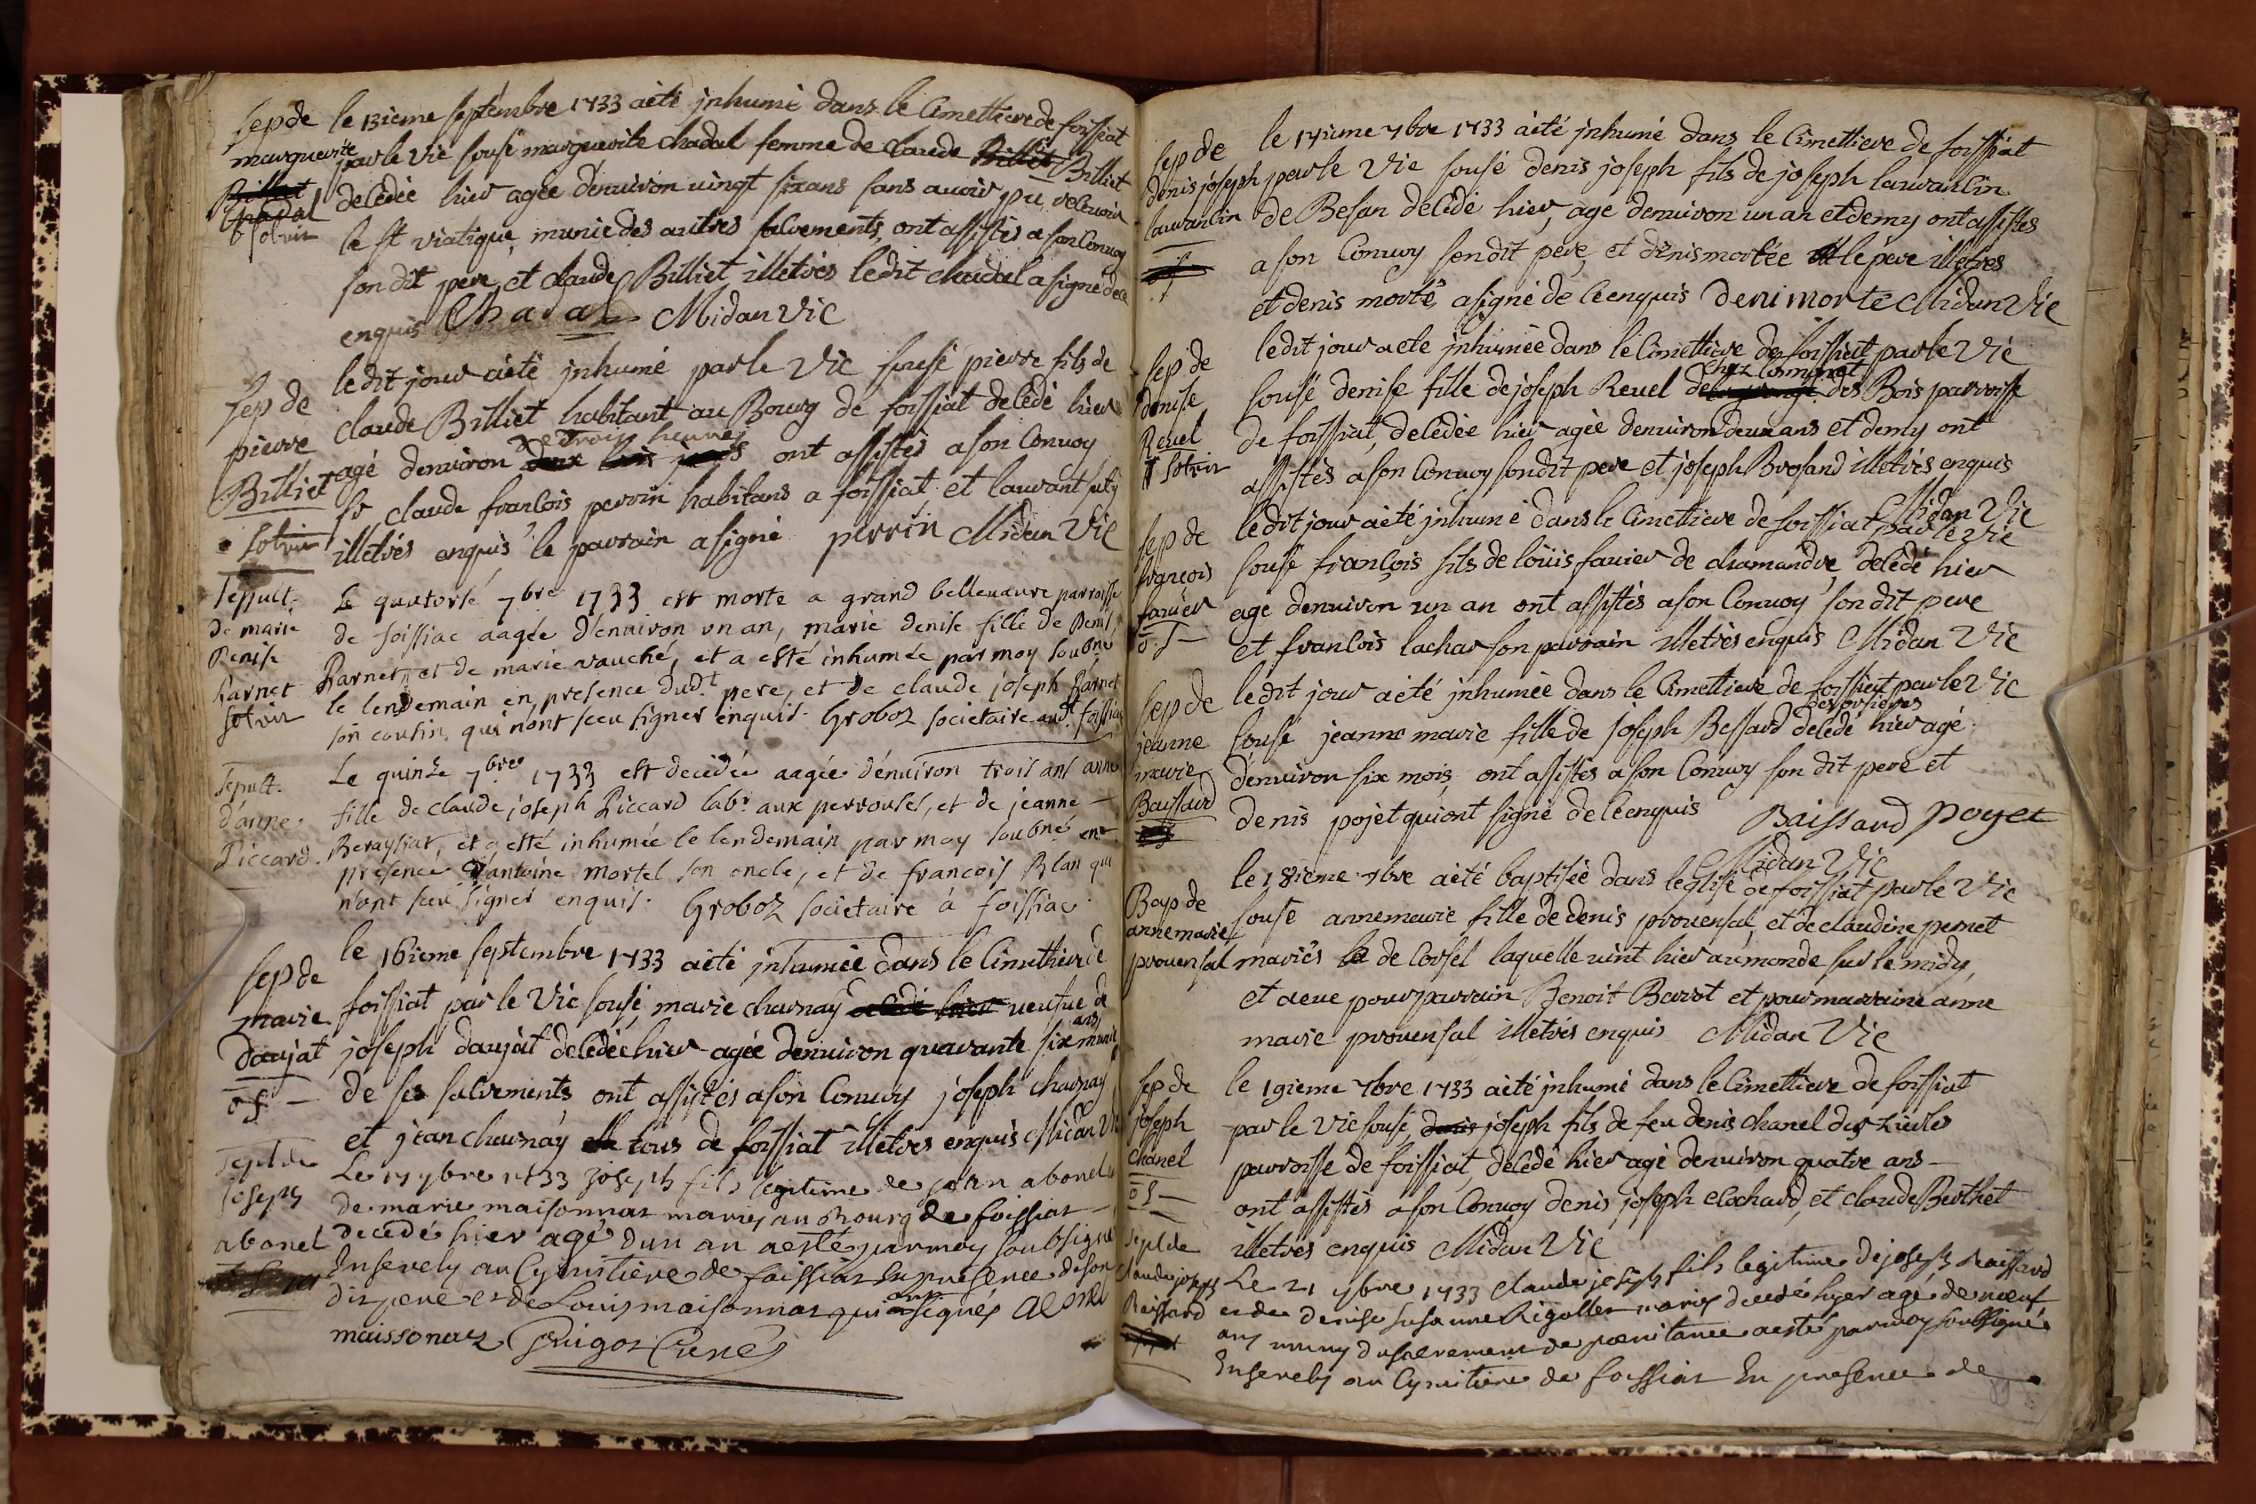 sep de
marguerite
Billiet
Chadal
solvir
le 13ieme septembre 1733 aété jnhumé dans le Cimettiere de foissiat
par le Vic sousé marguerite chadal femme de claude Billiet Billiet
décédée hier agée denuiron uingt six ans sans auoir pu receuoir
le st viatique munie des autres sacrements, ont assistés a son Conuoy
son dit pere, et claude Billiet illetrés ledit chadal a signé de ce
enquis Chadal Midan Vic
sep de
pierre
Billiet
solvir
ledit jour aété jnhumé par le Vic sousé pierre fils de
claude Billiet habitant au Bourg de foissiat décédé hier
agé denuiron de trois heures ont assistés a son Conuoy
sr claude francois perrin habitans a foissiat et laurant
illetrés enquis le parrain a signé perrin Midan Vic
Sepult.
De marie
Denise
Parnet
solvir
Le quatorse 7bre 1733 est morte a grand belleuaure parroisse
de foissiac aagée d'enuiron vn an, marie denise fille de Denis
Parnet, et de marie vauché, et a esté inhumée par moy soubné
le lendemain en presence dudt pere, et de claude joseph Parnet
son cousin, qui n'ont sceu signer enquis. Groboz societaire audt foissiac
Sepult.
d'anne
Piccard.
Le quinze 7bre 1733 est decedée aagée d'enuiron trois ans anne
fille de claude joseph Piccard labr aux perrouses, et de jeanne
Berayliat, et a esté inhumée le lendemain par moy soubné en
presence d'antoine mortel son oncle, et de francois Blan qui
n'ont sceu signer enquis. Groboz societaire à foissiac.
sep de
marie
daujat
o s
le 16ieme septembre 1733 aété jnhumée dans le Cimettiere de
foissiat par le Vic sousé marie charnay décédé hier ueufue de
joseph daujat décédée hier agée denuiron quarante six ans munie
de ses sacrements ont assistés a son Conuoy joseph charnay
et jean charnay tous de foissiat illetres enquis Midan Vic
Sepl de
joseph
abonel
Le 17 7bre 1733 joseph fils legitime de jean abonel
de marie maisonnat mariés au Bourg de foissiat
décédé hier agé dun an aesté par moy soubsigné
Enseuely au Cymitiere de foissiat En presence de son
dit pere et de Louis maisonnat qui ont signés Abonel
maissonaz Guigoz Curé
sep de
denis joseph
laurancin
le 17ieme 7bre 1733 aété jnhumé dans le Cimettiere de foissiat
par le Vic sousé denis joseph fils de joseph laurancin
de Besan décédé hier, age denuiron un an et demy ont assistes
a son Conuoy son dit pere, et denis mortée le pere illetres
et denis morté a signé de ce enquis Deni morte Midan Vic
sep de
Denise
Reuel
solvir
ledit jour a ete jnhumée dans le Cimettiere de foissiat par le Vic
sousé denise fille de joseph Reuel de chez des Bois parroisse
de foissiat, décédée hier agée denuiron deux ans et demy ont
assistés a son Conuoy son dit pere et joseph Brosand illetrés enquis
Midan Vic
sep de
françois
fauier
o s
ledit jour aété jnhumé dans le Cimettiere de foissiat par le Vic
sousé françois fils de loüis fauier de chamandre, décédé hier
age denuiron un an ont assistés a son Conuoy son dit pere
et francois lachar son parrain illetrés enquis Midan Vic
sep de
jeanne
marie
Baissard
ledit jour aété jnhumée dans le Cimettiere de foissiat par le Vic
sousé jeanne marie fille de joseph Bessard décédé hier agé
denuiron six mois, ont assistés a son Conuoy son dit pere et
denis pojet qui ont signé de ce enquis Baissard poyet
Midan Vic
Bap de
anne marie
prouensal
le 18ieme 7bre aété baptisée dans leglise de foissiat par le Vic
sousé anne marie fille de denis prouensal, et de claudine pernet
mariés de Corsel laquelle uint hier au monde sur le midy,
et a eue pour parrain Benoit Barrot et pour marraine anne
marie prouensal illetrés enquis Midan Vic
sep de
joseph
chanel
o s
le 19ieme 7bre 1733 aété jnhumé dans le Cimettiere de foissiat
par le Vic sousé, denis joseph fils de feu denis chanel des
parroisse de foissiat, décédé hier agé denuiron quatre ans
ont assistés a son Conuoy denis joseph clochard, et claude Berthet
illetres enquis Midan Vic
Sepl de
Claude joseph
Baissard
Le 21 7bre 1733 claude joseph fils legitime de joseph Baissard
et de denise susanne Rigollet mariés décédé hyer agé de neuf
ans muny du sacrement de penitance aesté par moy soubsigné
Enseuely au Cymitiere de foissiat En presence de